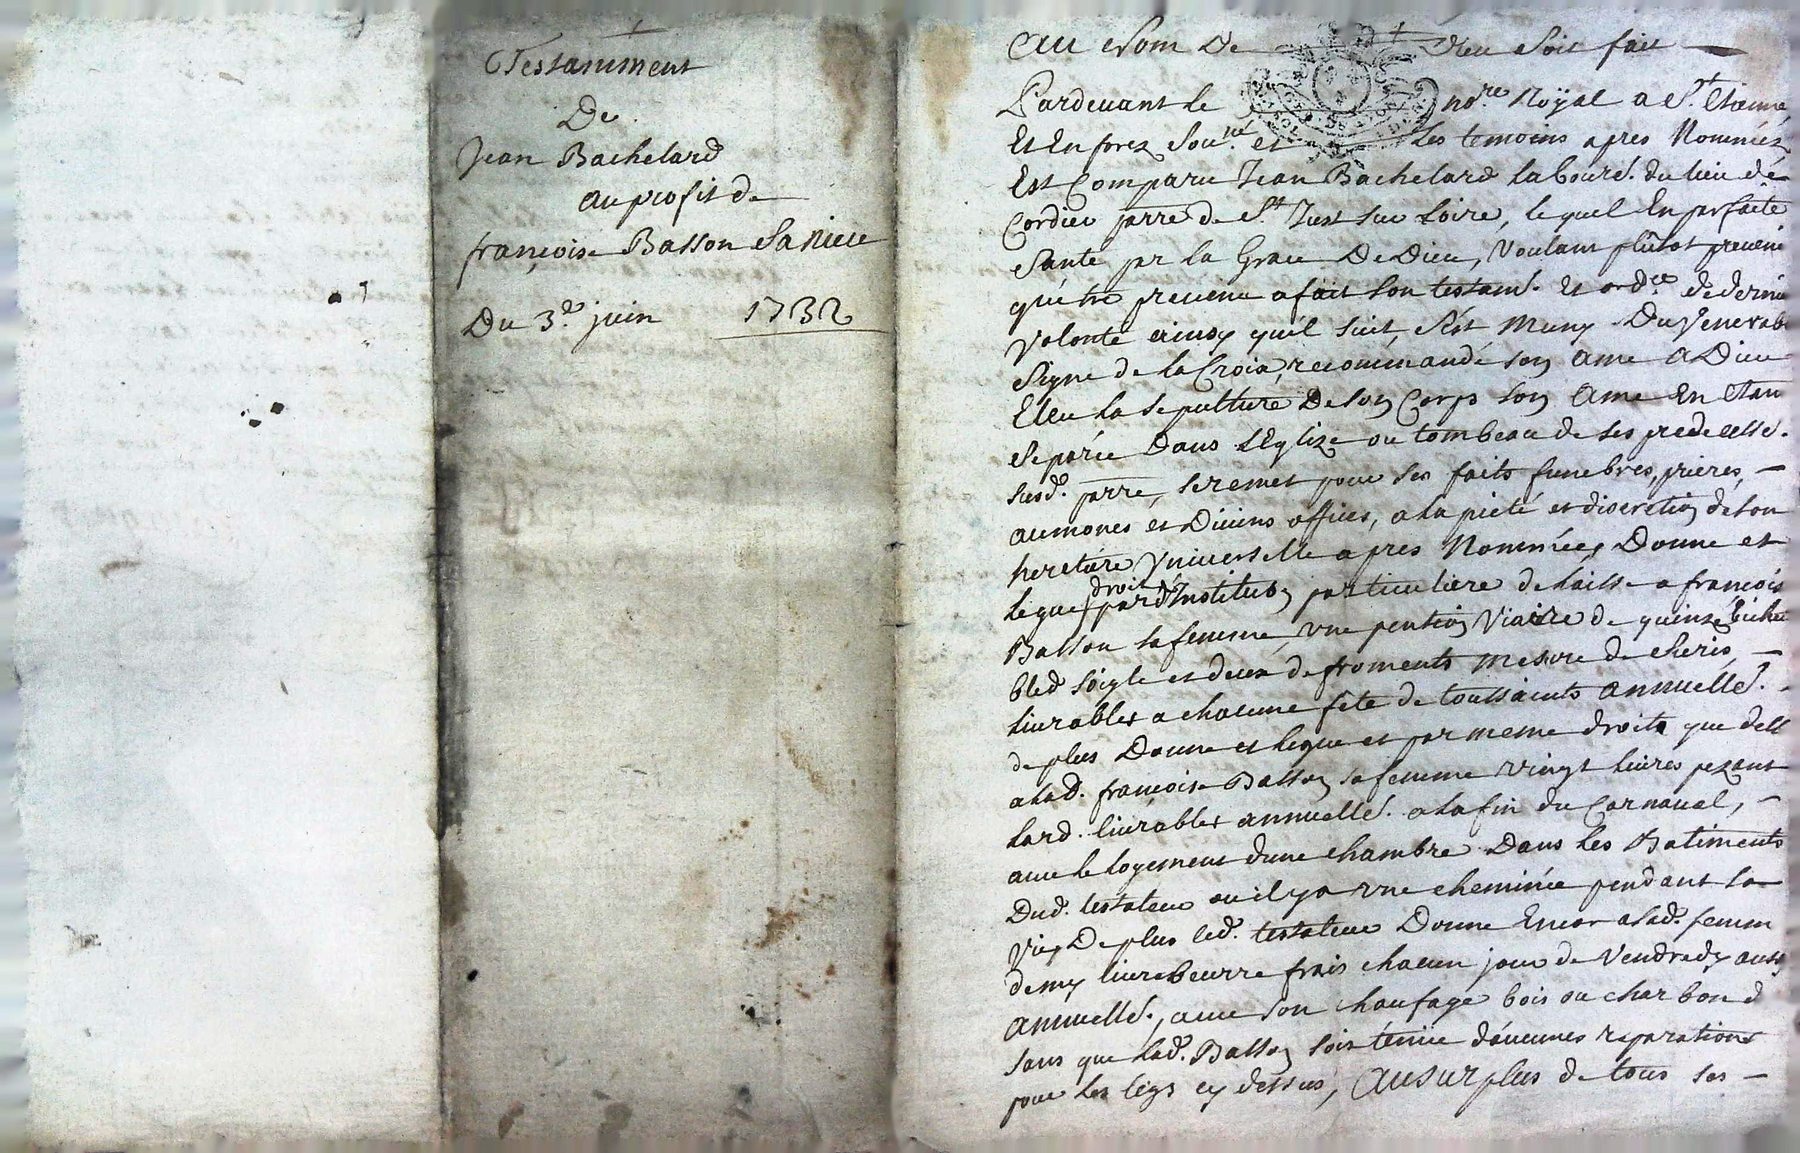 Testamment
De
Jean Bachelard
au profit de
françoise Basson sa niece
Du 3.e juin 1732
Au Nom De Dieu soit fait
Pardevant le no.re Royal a S.t Etienne
Et En forez sou.né et les temoins apres Nommés
Est Comparu Jean Bachelard Labour.r du lieu de
Cordieu parre de S.t Just sur Loire, lequel En parfaite
Santé par la Grace De Dieu, Voulant plutot prevenir
qu'etre prevenu a fait son testam.t Et ord.ce de derniere
Volonté ainsy qu'il suit s'est Muny Du Venerab
Signe de la Croix, recommandé son ame a Dieu
Eleu la sepulture De son Corps son Ame En etan
separée Dans l'Eglize ou tombeau de ses predecess.
susd. parre, se remet pour ses faits funebres, prieres,
aumones et Divins offices, a la pieté et discretion de son
heretiere Vniverselle apres Nommée, Donne et
legue par droit d'Institution particuliere delaisse a françois
Basson sa femme, vne pention Viagere de quinze bichet
bled soigle et deux de froments Mesure de cheris,
livrables a chacune fête de toussaints annuelle.t
de plus Donne et legue et par meme droits que dess
a lad. françoise Basson sa femme vingt livres pezant
lard. livrables annuelle.t a la fin du Carnaval,
avec le logement d'une chambre Dans les Batiments
Dud. testateur ou il y a vne cheminée pendant sa
vie, De plus led. testateur Donne Encor a lad. femm
demy livre beurre frais chacun jour de Vendredy aussy
annuelle.t, avec son chaufage bois ou charbon d
sans que lad. Basson soit tenue d'aucunes reparations
pour les legs cy dessus, Au surplus de tous ses